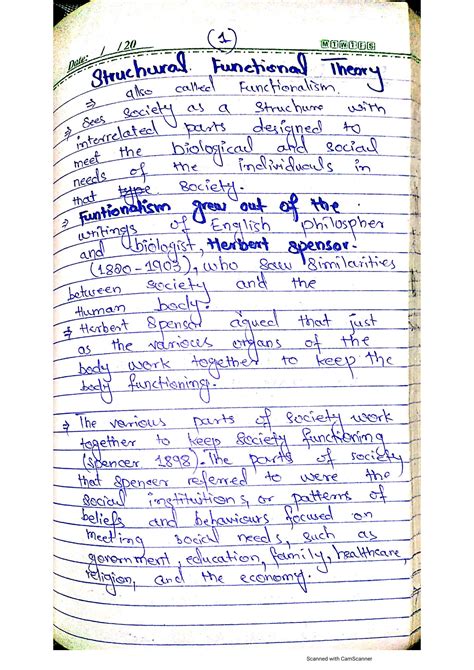 (1)
Date: / /20 M T W T F S
Structural Functional Theory
⇒ also called Functionalism.
⇒ Sees society as a structure with
interrelated parts designed to
meet the biological and social
needs of the individuals in
that society.
⇒ Funtionalism grew out of the
writings of English philospher
and biologist, Herbert spensor.
(1820-1903), who saw similarities
between society and the
Human body.
⇒ Herbert Spensor agued that just
as the various organs of the
body work together to keep the
body functioning.
⇒ The various parts of society work
together to keep society functioning
(spencer 1898). The parts of society
that spencer referred to were the
social instituitions, or patterns of
beliefs and behaviours focused on
meeting social needs, such as
government, education, family, healthcare,
religion, and the economy.
Scanned with CamScanner